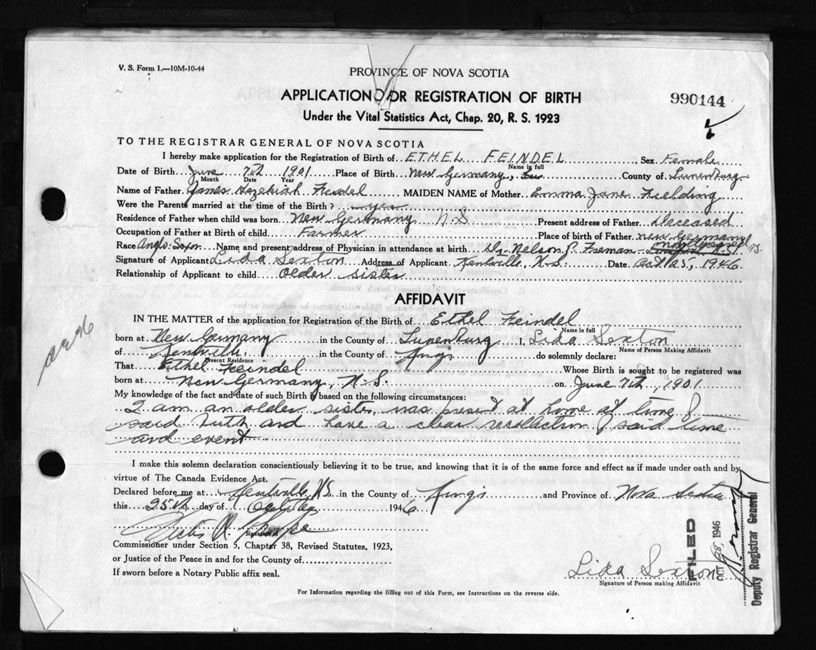 V. S. Form 1.—10M-10-44
PROVINCE OF NOVA SCOTIA
APPLICATION FOR REGISTRATION OF BIRTH
990144
Under the Vital Statistics Act, Chap. 20, R. S. 1923
TO THE REGISTRAR GENERAL OF NOVA SCOTIA
I hereby make application for the Registration of Birth of ETHEL FEINDEL Sex Female
Name in full
Date of Birth June 7th 1901 Place of Birth New Germany, County of Lunenburg
Month Date Year
Name of Father James Hezekiah Feindel MAIDEN NAME of Mother Emma Jane Fielding
Were the Parents married at the time of the Birth? yes
Residence of Father when child was born New Germany N S Present address of Father Deceased
Occupation of Father at Birth of child Farmer Place of birth of Father New Germany
Race Anglo-Saxon Name and present address of Physician in attendance at birth Dr. Nelson P. Freeman
Signature of Applicant Lida Sexton Address of Applicant Kentville, N.S. Date Oct 25, 1946
Relationship of Applicant to child older sister
AFFIDAVIT
IN THE MATTER of the application for Registration of the Birth of Ethel Feindel
Name in full
born at New Germany in the County of Lunenburg I, Lida Sexton
Name of Person Making Affidavit
of Kentville in the County of Kings do solemnly declare:
Present Residence
That Ethel Feindel Whose Birth is sought to be registered was
born at New Germany, N.S. on June 7th, 1901
My knowledge of the fact and date of such Birth is based on the following circumstances:
I am an older sister, was present at home at time of
said birth and have a clear recollection of said time
and event
I make this solemn declaration conscientiously believing it to be true, and knowing that it is of the same force and effect as if made under oath and by
virtue of The Canada Evidence Act.
Declared before me at Kentville, N.S. in the County of Kings and Province of Nova Scotia
this 25th day of October 1946
Commissioner under Section 5, Chapter 38, Revised Statutes, 1923,
or Justice of the Peace in and for the County of
If sworn before a Notary Public affix seal.
Lida Sexton
Signature of Person making Affidavit
For Information regarding the filling out of this Form, see Instructions on the reverse side.
FILED
OCT 28 1946
Deputy Registrar General